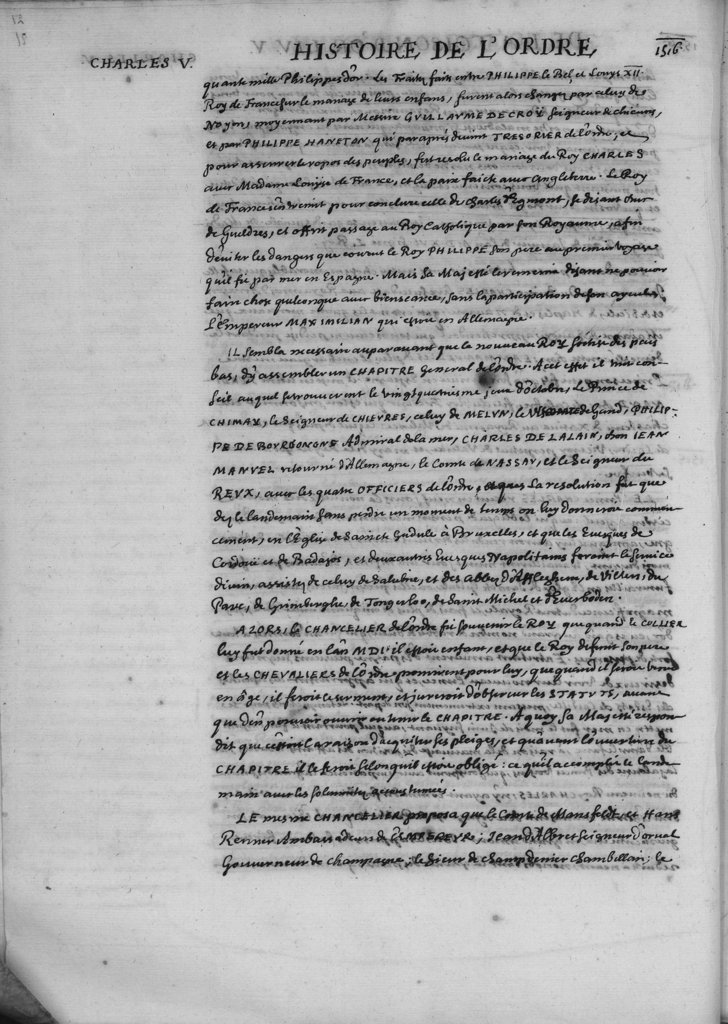 CHARLES V.
HISTOIRE DE L'ORDRE
1516
quante mille Philippes d'or. Les Traitez faits entre PHILIPPE le Bel et Louys XII
Roy de France sur le mariage de leurs enfans, furent alors changez par celuy de
Noyon, moyennant par Messire GUILLAUME DE CROY seigneur de chieures,
et par PHILIPPE HANETON qui par aprés deuint TRESORIER de l'ordre, et
pour asseurer le repos des peuples, fut resolu le mariage du Roy CHARLES
auec Madame Louyse de France, et la paix faicte auec Angleterre. Le Roy
de France interuint pour conclure celle de Charles d'Egmont, se disant duc
de Gueldres, et offrit passage au Roy Catholique par son Royaume, afin
d'euiter les dangers que courut le Roy PHILIPPE son pere au premier voyage
qu'il fit par mer en Espagne. Mais sa Majesté l'en remercia disant ne pouuoir
faire chose quelconque auec bienseance, sans la participation de son ayeul
L'Empereur MAXIMILIAN qui estoit en Allemagne.
IL sembla necessaire auparauant que le nouueau ROY sortist des pais
bas, d'y assembler un CHAPITRE General de l'ordre. A cet effet il tint con-
seil auquel se trouuerent le vingtquatriesme jour d'octobre, le Prince de
CHIMAY, le seigneur de CHIEVRES, celuy de MELUN, le Visconte de Gand, PHILIP-
PE DE BOURGONGNE Admiral de la mer, CHARLES DE LALAIN, don IEAN
MANUEL retourné d'Allemagne, le Comte de NASSAU, et le seigneur du
REUX, auec les quatre OFFICIERS de l'ordre, la resolution fut que
dez le landemain sans perdre un moment de temps on luy donneroit commen-
cement, en l'Eglise de Saincte Gudule à Bruxelles, et que les Euesques de
Cordoüe et de Badajos, et deux autres Euesques Napolitains feroient le seruice
diuin, assistez de celuy de Salubrie, et des abbez d'Afflighem, de Villers, du
Parc, de Grimberghe, de Tongerloo, de Sainct Michel et d'Euerboden.
ALORS, le CHANCELIER de l'ordre fit souuenir le ROY que quand le COLLIER
luy fut donné en l'an MDI. il estoit enfant, et que le Roy defunt son pere
et les CHEVALIERS de l'ordre promirent pour luy, que quand il seroit venu
en âge, il feroit le serment, et jureroit d'obseruer les STATUTS, auant
que d'en pouuoir ouurir ou tenir le CHAPITRE. A quoy sa Majesté respon-
dit que c'estoit la raison d'acquiter ses pleiges, et quauant l'ouuerture du
CHAPITRE il le feroit selon qu'il estoit obligé: ce qu'il accomplit le lende-
main auec les solemnitez accoustumées.
LE mesme CHANCELIER proposa que le Comte de Mansfeldt, et Hans
Renner Ambassadeurs de l'EMPEREUR; Jean d'Albret seigneur d'orual
Gouuerneur de Champagne; le sieur de Champdenier Chambellan; le